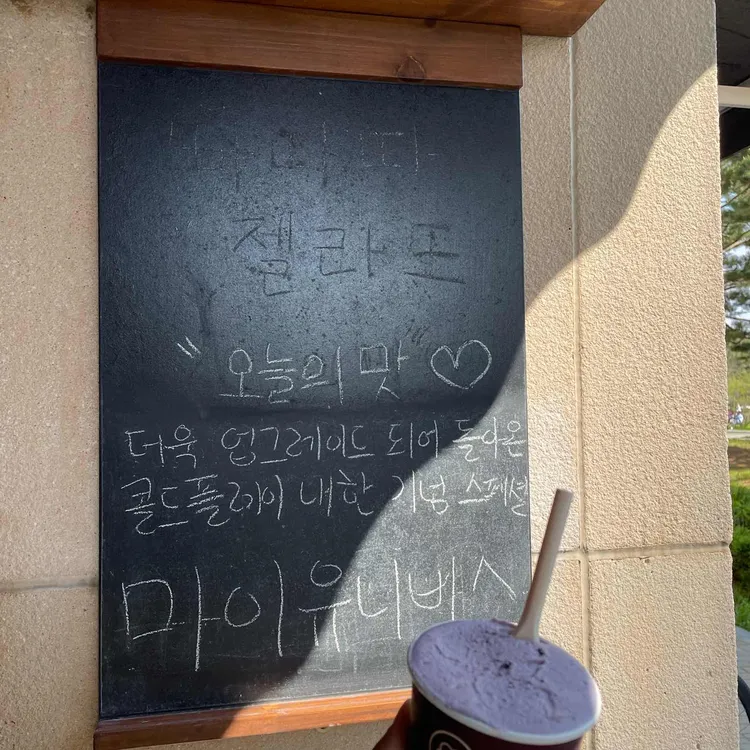 젤라또
"오늘의 맛"♡
더욱 업그레이드 되어 돌아온
콜드플레이 내한 기념 스페셜
마이유니버스